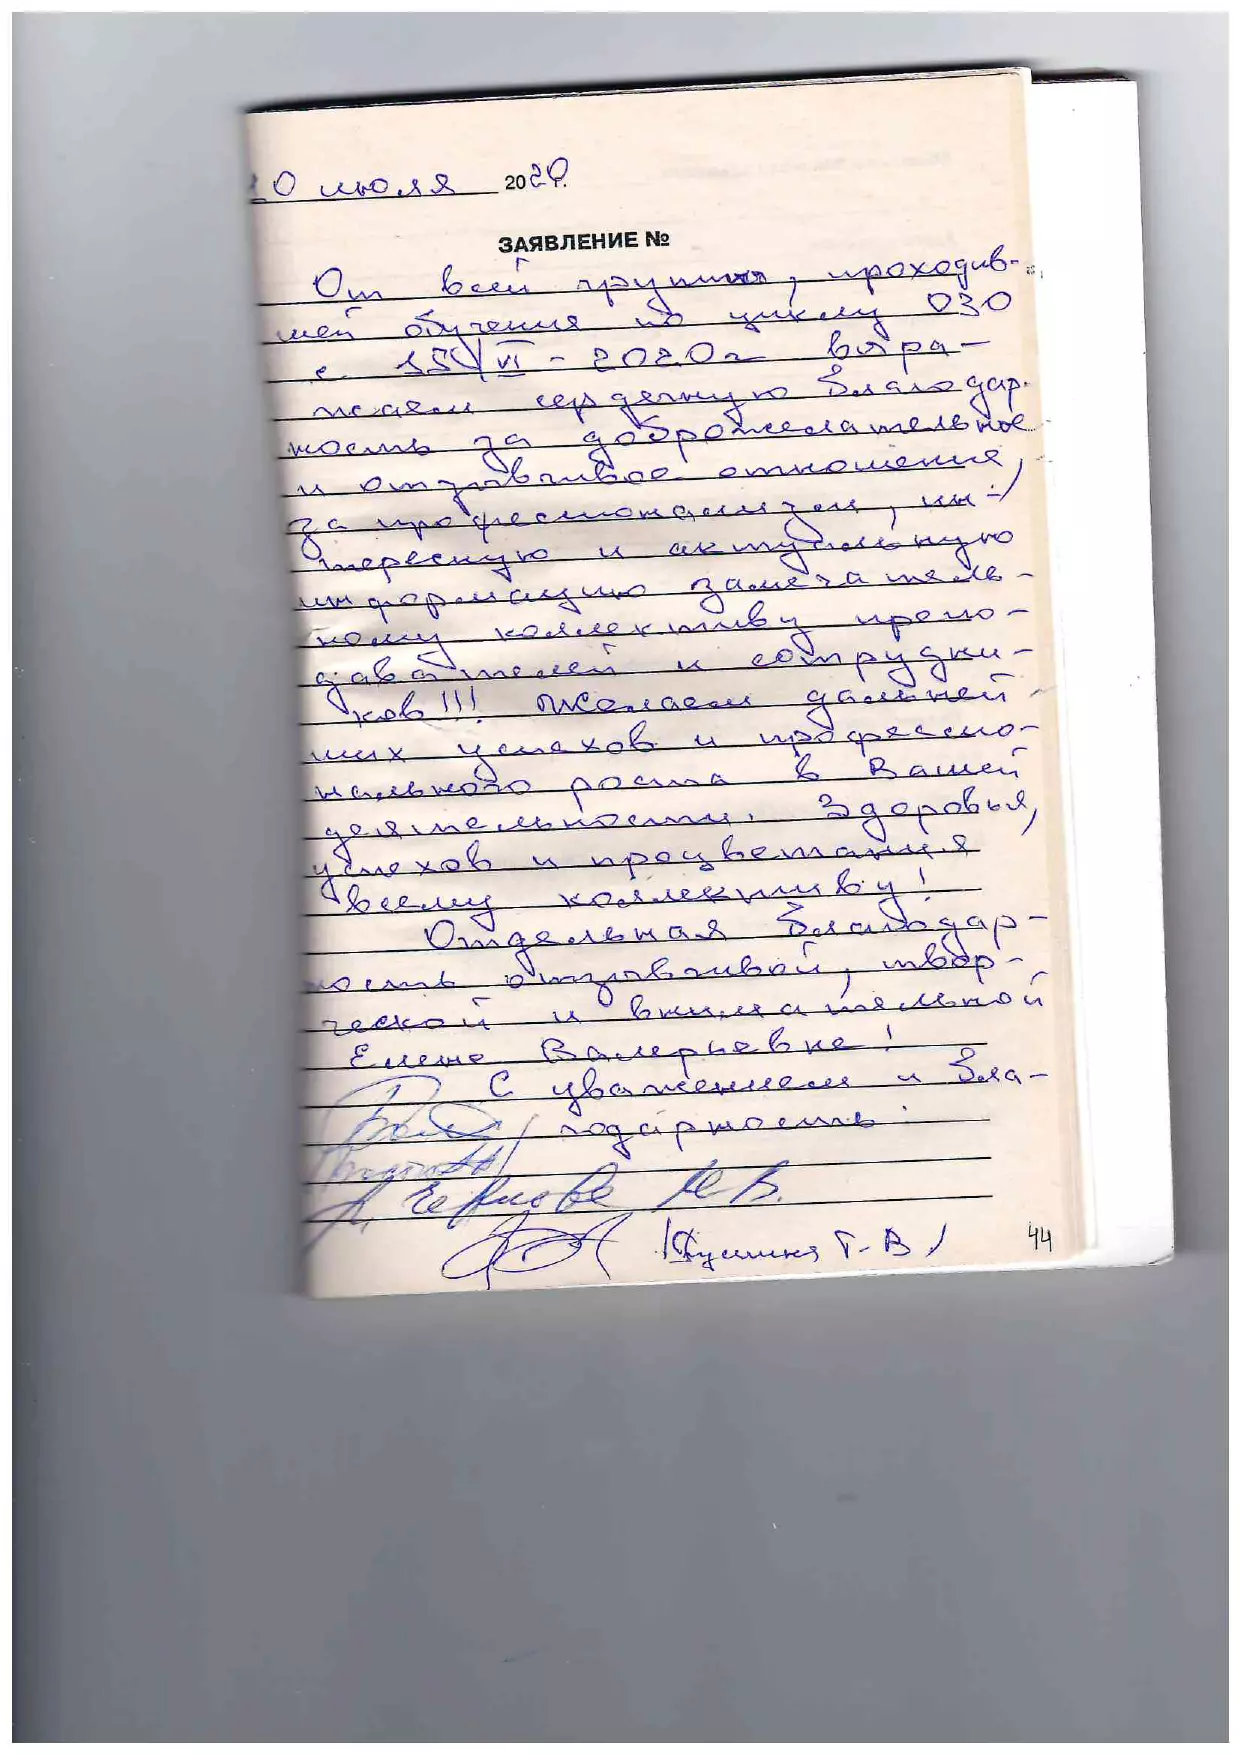 10 июля 2020 г.
ЗАЯВЛЕНИЕ №
От всей группы, проходив-
шей обучения по циклу ОЗО
с VI - 2020г выра-
жаем сердечную благодар-
ность за доброжелательное
и отзывчивое отношение,
за профессионализм, ин-
тересную и актуальную
информацию замечатель-
ному коллективу препо-
давателей и сотрудни-
ков!!! Желаем дальней-
ших успехов и профессио-
нального роста в Вашей
деятельности. Здоровья,
успехов и процветания
всему коллективу!
Отдельная благодар-
ность отзывчивой, твор-
ческой и внимательной
Елене Валерьевне!
С уважением и бла-
годарность:
М.В.
Г.В/
44